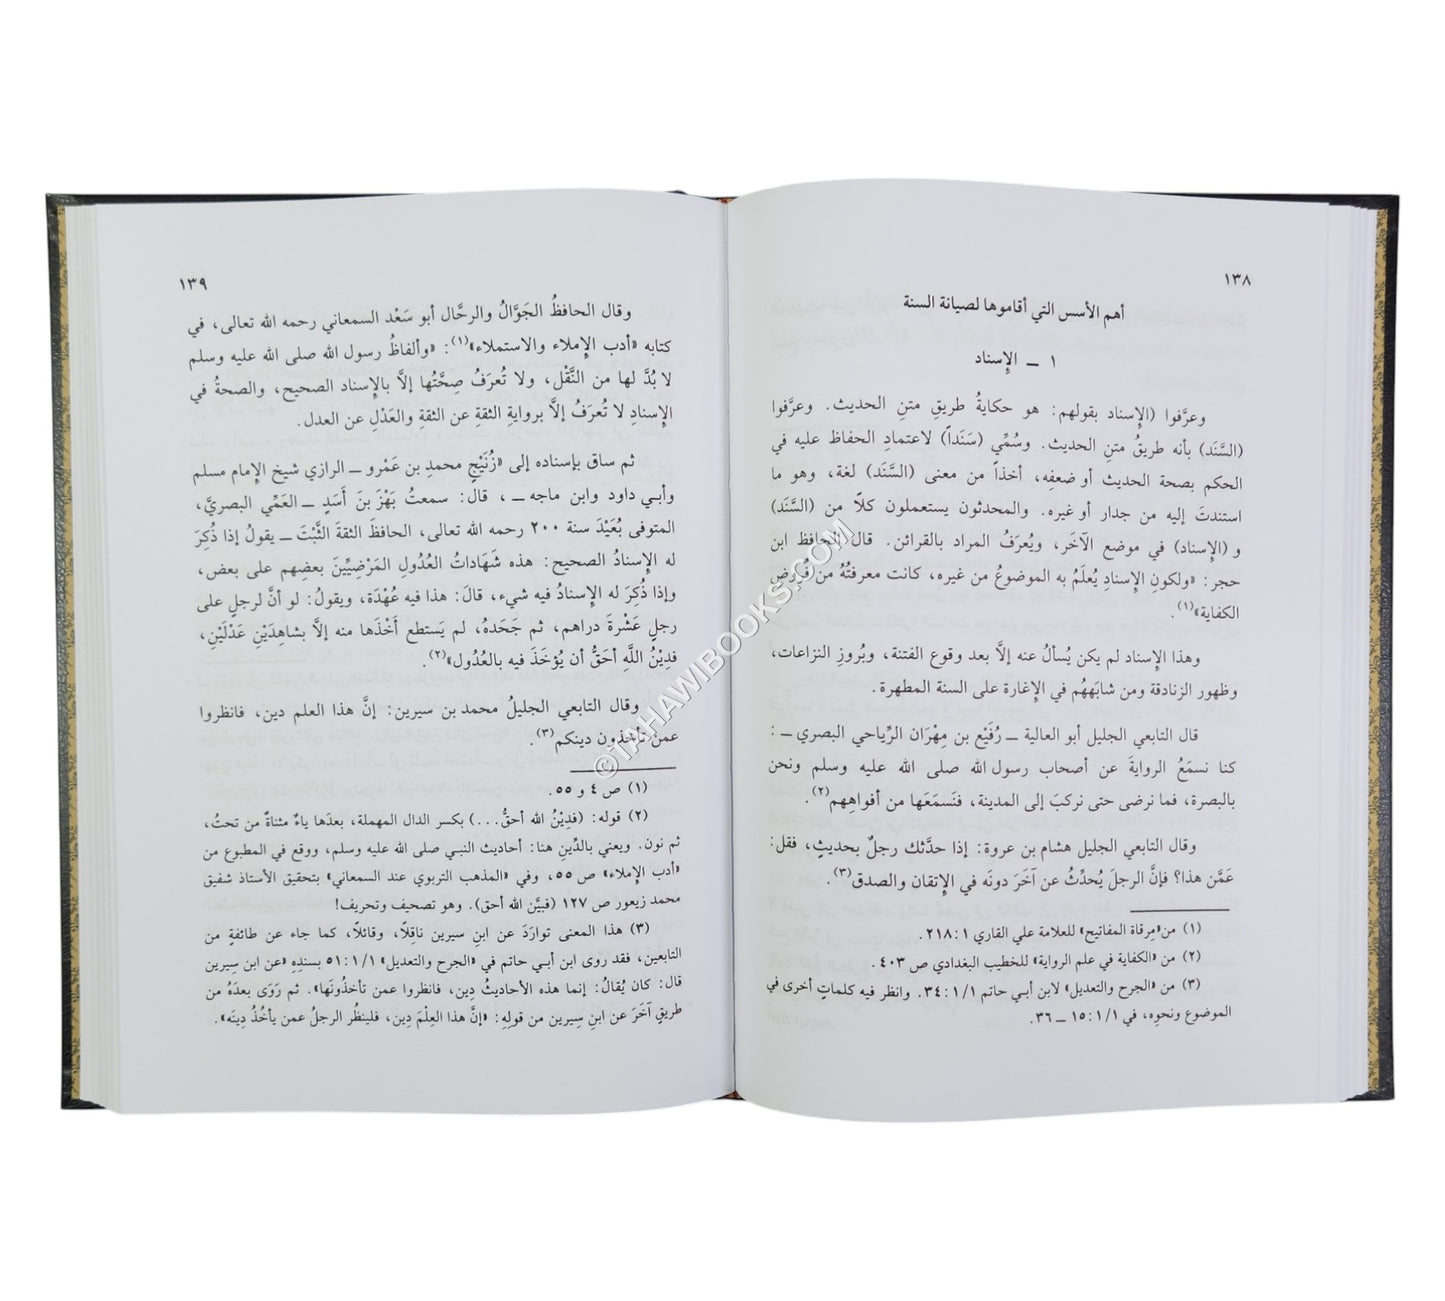 ١٣٨
أهم الأسس التي أقاموها لصيانة السنة
١ ـ الإسناد
وعرَّفوا (الإسناد بقولهم: هو حكايةُ طريقِ متنِ الحديث. وعرَّفوا
(السَّنَد) بأنه طريقُ متنِ الحديث. وسُمِّي (سَنَداً) لاعتمادِ الحفاظ عليه في
الحكم بصحة الحديث أو ضعفِه، أخذاً من معنى (السَّنَد) لغة، وهو ما
استندتَ إليه من جدار أو غيره. والمحدثون يستعملون كلاً من (السَّنَد)
و (الإسناد) في موضع الآخَر، ويُعرَفُ المراد بالقرائن. قال الحافظ ابن
حجر: «ولكونِ الإسنادِ يُعلَمُ به الموضوعُ من غيره، كانت معرفتُهُ من فُروض
الكفاية»(١).
وهذا الإسناد لم يكن يُسألُ عنه إلاَّ بعد وقوع الفتنة، وبُروزِ النزاعات،
وظهور الزنادقة ومن شابَههُم في الإغارة على السنة المطهرة.
قال التابعي الجليل أبو العالية ـ رُفَيْع بن مِهْرَان الرِّياحي البصري ـ :
كنا نسمَعُ الروايةَ عن أصحاب رسول الله صلى الله عليه وسلم ونحن
بالبصرة، فما نرضى حتى نركبَ إلى المدينة، فنَسمَعَها من أفواهِهم(٢).
وقال التابعي الجليل هشام بن عروة: إذا حدَّثك رجلٌ بحديثٍ، فقل:
عَمَّن هذا؟ فإنَّ الرجلَ يُحدِّثُ عن آخَرَ دونَه في الإتقان والصدق(٣).
(١) من «مِرقاة المفاتيح» للعلامة علي القاري ١:٢١٨.
(٢) من «الكفاية في علم الرواية» للخطيب البغدادي ص ٤٠٣.
(٣) من «الجرح والتعديل» لابن أبي حاتم ١/١:٣٤. وانظر فيه كلماتٍ أخرى في
الموضوع ونحوِه، في ١/١:١٥ ـ ٣٦.
١٣٩
وقال الحافظُ الجَوَّالُ والرحَّال أبو سَعْد السمعاني رحمه الله تعالى، في
كتابه «أدب الإملاء والاستملاء»(١): «وألفاظُ رسول الله صلى الله عليه وسلم
لا بُدَّ لها من النَّقْل، ولا تُعرَفُ صِحَّتُها إلاَّ بالإسناد الصحيح، والصحةُ في
الإسنادِ لا تُعرَفُ إلاَّ بروايةِ الثقةِ عن الثقةِ والعَدْلِ عن العدل.
ثم ساق بإسناده إلى «زُنَيْجٍ محمدِ بن عَمْرو ـ الرازي شيخ الإمام مسلم
وأبـي داود وابن ماجه ـ، قال: سمعتُ بَهْزَ بنَ أَسَدٍ ـ العَمِّي البصريَّ،
المتوفى بُعَيْدَ سنة ٢٠٠ رحمه الله تعالى، الحافظَ الثقةَ الثَّبْتَ ـ يقولُ إذا ذُكِرَ
له الإسنادُ الصحيح: هذه شَهَاداتُ العُدُولِ المَرْضِيِّينَ بعضِهم على بعض،
وإذا ذُكِرَ له الإسنادُ فيه شيء، قالَ: هذا فيه عُهْدَة، ويقولُ: لو أنَّ لرجلٍ على
رجلٍ عَشْرةَ دراهم، ثم جَحَدهُ، لم يَستطع أَخْذَها منه إلاَّ بشاهِدَيْنِ عَدْلَيْنِ،
فدِيْنُ اللَّهِ أحَقُّ أن يُؤخَذَ فيه بالعُدُول»(٢).
وقال التابعي الجليلُ محمد بن سيرين: إنَّ هذا العلم دين، فانظروا
عمن تأخذون دينكم(٣).
(١) ص ٤ و ٥٥.
(٢) قوله: (فدِيْنُ الله أحقُّ...) بكسر الدال المهملة، بعدَها ياءٌ مثناةٌ من تحتُ،
ثم نون. ويعني بالدِّينِ هنا: أحاديث النبي صلى الله عليه وسلم، ووقع في المطبوع من
«أدب الإملاء» ص ٥٥، وفي «المذهب التربوي عند السمعاني» بتحقيق الأستاذ شفيق
محمد زيعور ص ١٢٧ (فبيَّن الله أحق). وهو تصحيف وتحريف!
(٣) هذا المعنى تواردَ عن ابنِ سيرين ناقِلاً، وقائلاً، كما جاء عن طائفةٍ من
التابعين، فقد روى ابن أبـي حاتم في «الجرح والتعديل» ١/١:٥١ بسندِهِ «عن ابن سِيرين
قال: كان يُقالُ: إنما هذه الأحاديثُ دِين، فانظروا عمن تأخذونَها». ثم رَوَى بعدَهُ من
طريقٍ آخَرَ عن ابنِ سِيرين من قولِهِ: «إنَّ هذا العِلْمَ دِين، فلينظُر الرجلُ عمن يأخُذُ دِينَه».
©TAHAWIBOOKS.COM